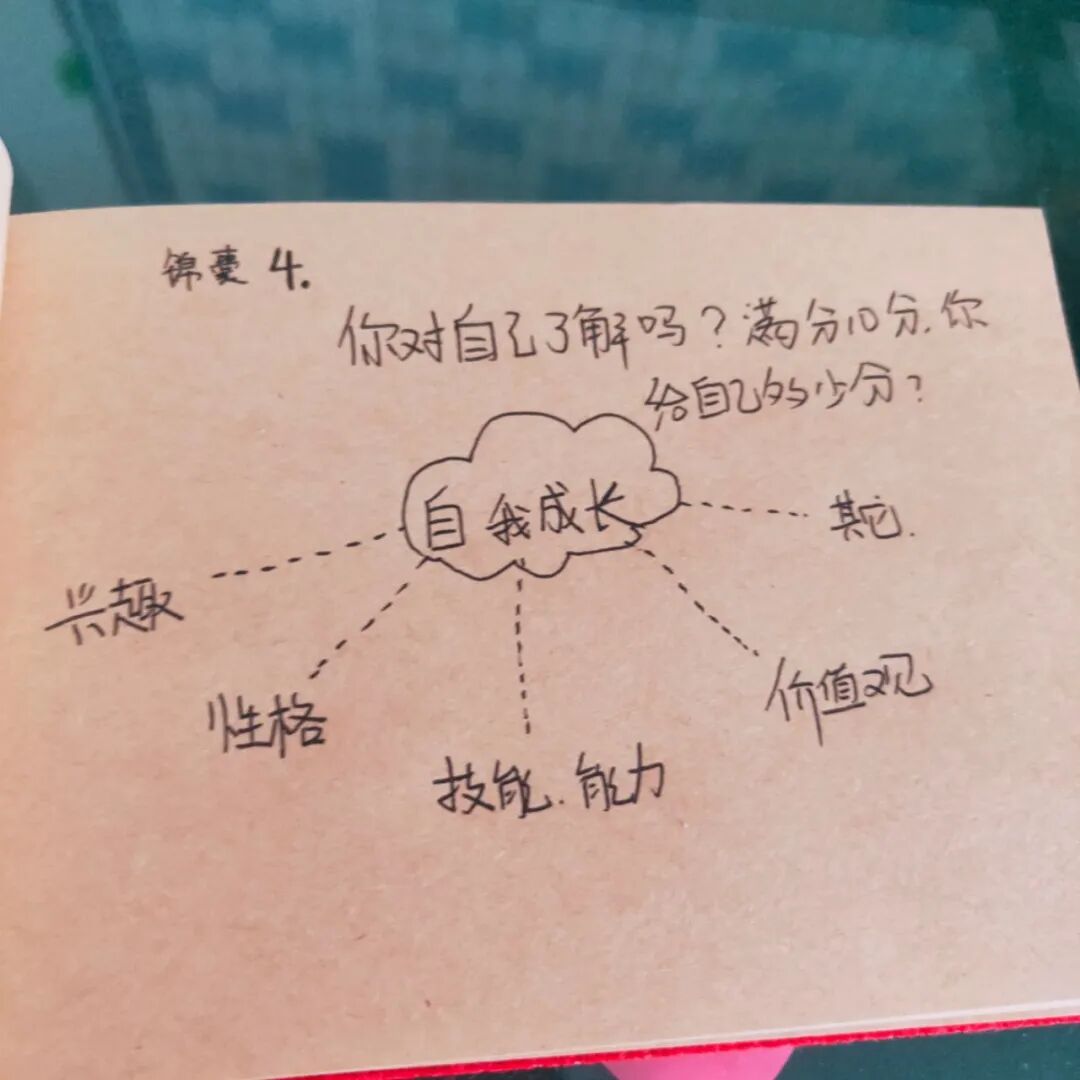 锦囊 4.
你对自己了解吗？满分10分.你
给自己多少分？
自我成长
其它.
兴趣
性格
技能.能力
价值观